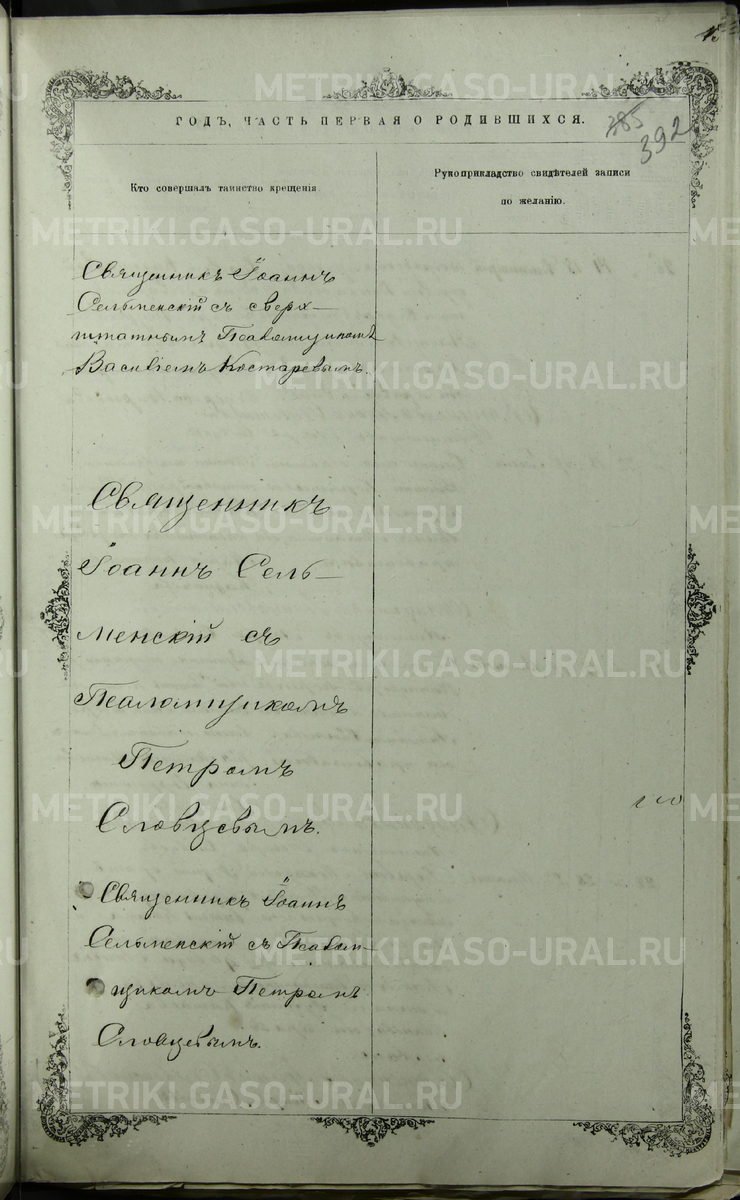 ГОДЪ, ЧАСТЬ ПЕРВАЯ О РОДИВШИХСЯ.
385
392
Кто совершалъ таинство крещенія.
Рукоприкладство свидѣтелей записи
по желанію.
Священникъ Іоаннъ
Сельменскій съ сверх-
штатнымъ Псаломщикомъ
Василіемъ Костаревымъ.
Священникъ
Іоаннъ Сель-
менскій съ
Псаломщикомъ
Петромъ
Словцевымъ.
Священникъ Іоаннъ
Сельменскій съ Псалом-
щикомъ Петромъ
Словцевымъ.
METRIKI.GASO-URAL.RU